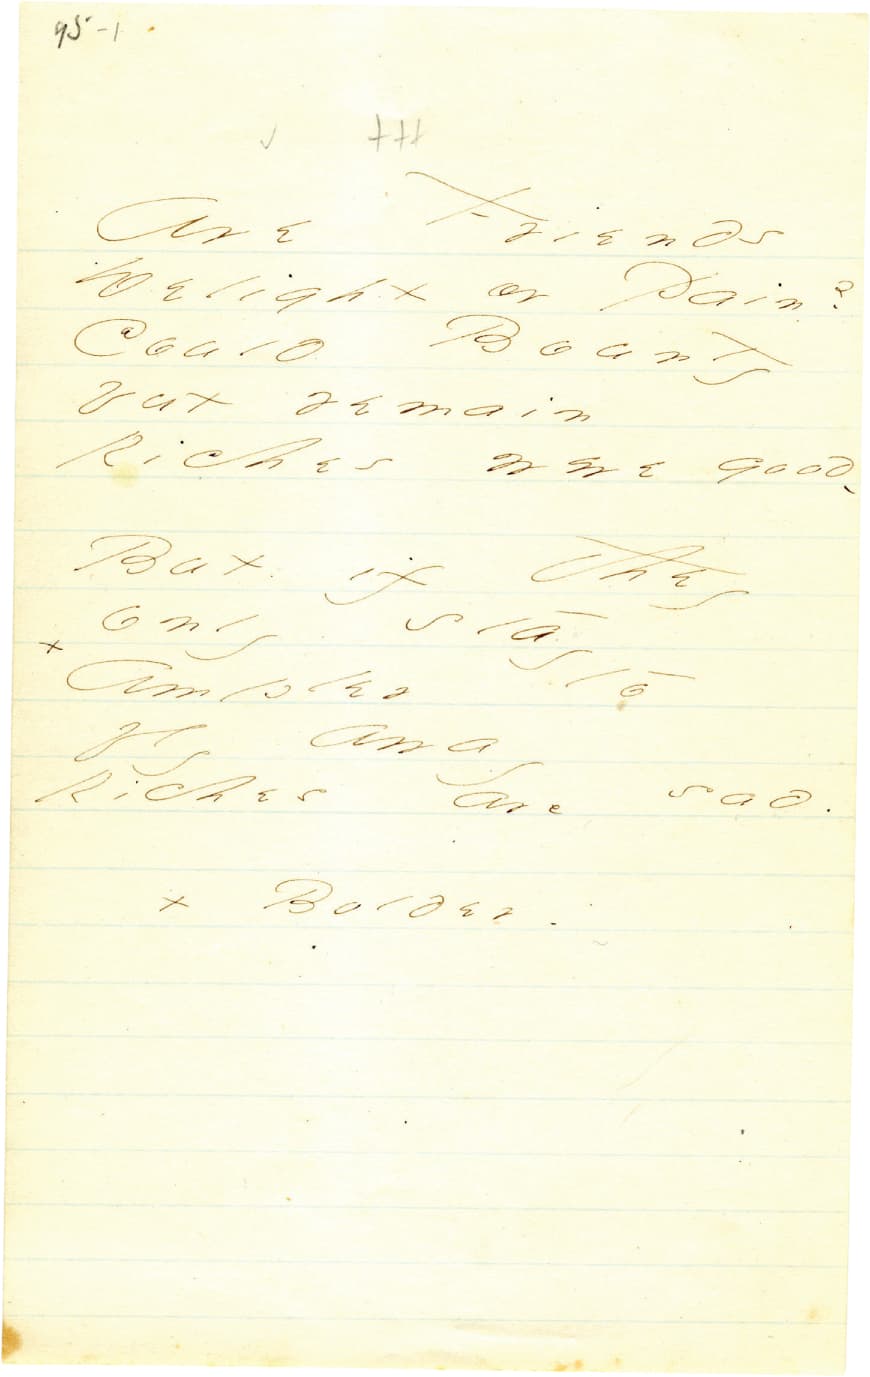 95-1
Are Friends
Delight or Pain?
Could Bounty
but remain
Riches were good,
But if they
only stay
+
Ampler to
fly and
Riches are sad.
+ Bolder.